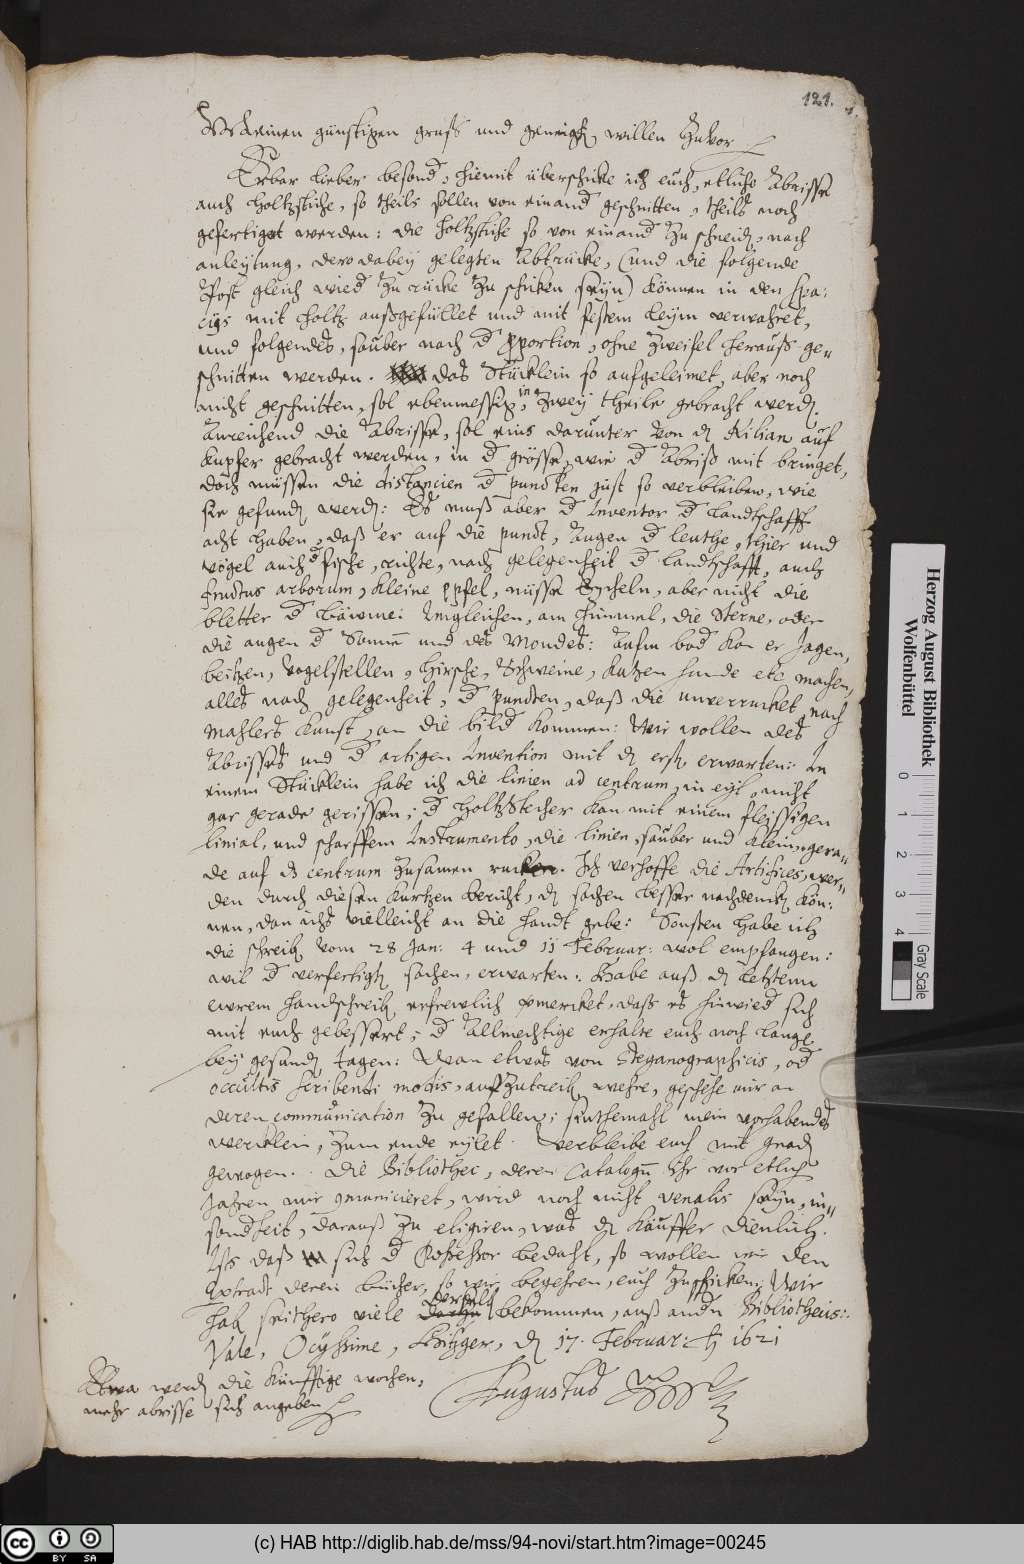 121.
Meinen günstigen gruß und geneigten willen zuvor
Erbar lieber besonder, hiemit überschicke ich euch, etliche Abrisse
auch holtzstiche, so theils sollen von einand geschnitten, theils noch
gefertiget werden: die holtzstiche so von einand zu schneiden, nach
anleytung, dero dabey gelegten Abtrücke, (und die folgende
Post gleich wied zu rücke zu schicken seyn) können in den spa:
cijs mit holtz außgefüllet und mit festem leym verwahret,
und folgendes, sauber nach d proportion, ohne zweifel herauß ge„
schnitten werden. das Stücklein so aufgeleimet, aber noch
nicht geschnitten, sol ebenmessig, in zwey theile gebracht werden.
Anreichend die Abrisse, sol eins darunter von dem Kilian auf
Kupfer gebracht werden, in d grösse, wie d Abriß mit bringet,
doch müssen die distancien d puncten just so verbleiben, wie
sie gefunden werden: Es muß aber d Inventor d landtschafft
acht haben, daß er auf die punct, Augen d leuthe, thier und
vögel auch d fische, richte, nach gelegenheit d landschafft, auch
fructus arborum, kleine äpfel, nüsse Eycheln, aber nicht die
bletter d bäwme: Imgleichen, am himmel, die Sterne, oder
die augen d Sonnen und des Mondes: Aufm bod kan er Jagen,
beitzen, vogelstellen, hirsche, Schweine, Katzen hunde etc machen,
alles nach gelegenheit, d puncten, daß die unverrucket nach
Mahlers kunst, an die bild kommen: Wir wollen des
Abrisses und d artigen Invention mit dem ersten erwarten: In
einem Stücklein habe ich die linien ad centrum, in eyl, nicht
gar gerade gerissen; d holtzstecher kan mit einem fleissigen
linial, und scharffem Instrumento, die linien, sauber und klein, gera„
de auf das centrum zusamen rucken. Ich verhoffe die Artifices, wer„
den durch diesen kurtzen bericht, den sachen besser nachdencken kön:
nen, dan ichs vielleicht an die handt gebe: Sonsten habe ich
die schreiben vom 28 Jan: 4 und 11 Februar: wol empfangen:
wil d verfertigten sachen, erwarten. Habe auß dem letztenn
ewrem handschreiben erfrewlich vermercket, daß es hinwied sich
mit euch gebessert; d Allmechtige erhalte euch noch lange
bey gesunden tagen: Wan etwas von Steganographicis, od
occultis scribendi modis, auffzutreiben wehre, geschehe mir an
deren communication zu gefallen; sinthemahl mein vorhabendes
wercklein, zum ende eylet. Verbleibe euch mit gnaden
gewogen. Die Bibliothec, deren Catalogum Ihr vor etlichen
Jahren mir communicieret, wird noch nicht venalis seyn, in„
sonderheit, darauß zu eligiren, was dem käuffer dienlich.
Ist daß sich d Possessor bedacht, so wollen wir den
Extract deren bücher, so wir begehren, euch zuschicken; Wir
haben seithero viele derselben bekommen, auß andern Bibliothecis:
Vale, Ocyssime, Hitzger, den 17. Februar: 1621
Augustus
Etwa werden die künfftige wochen,
mehr abrisse sich angeben
Herzog August Bibliothek
Wolfenbüttel
0 1 2 3 4
Gray Scale
CC BY SA
(c) HAB http://diglib.hab.de/mss/94-novi/start.htm?image=00245